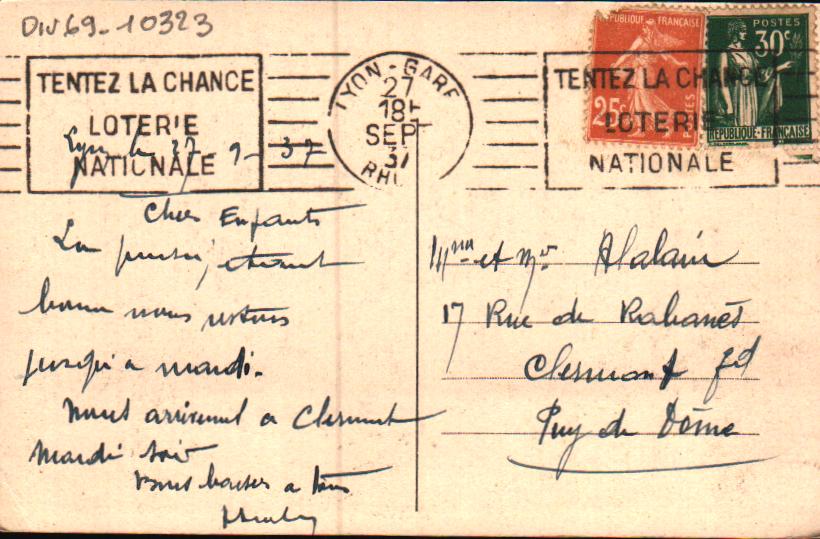 Div69-10323
TENTEZ LA CHANCE
LOTERIE
NATIONALE
LYON-GARE
27
18H
SEPT
37
RHO
REPUBLIQUE FRANÇAISE
25c
POSTES
POSTES
30c
REPUBLIQUE-FRANÇAISE
TENTEZ LA CHANCE
LOTERIE
NATIONALE
Lyon le 27-9-37
Chers Enfants
La
bonne nous restons
jusqu'a mardi.
Nous arriverons a Clermont
Mardi soir
Bons baisers a tous
Mme et Mr Alalain
17 Rue de Rabanès
Clermont Fd
Puy de Dôme